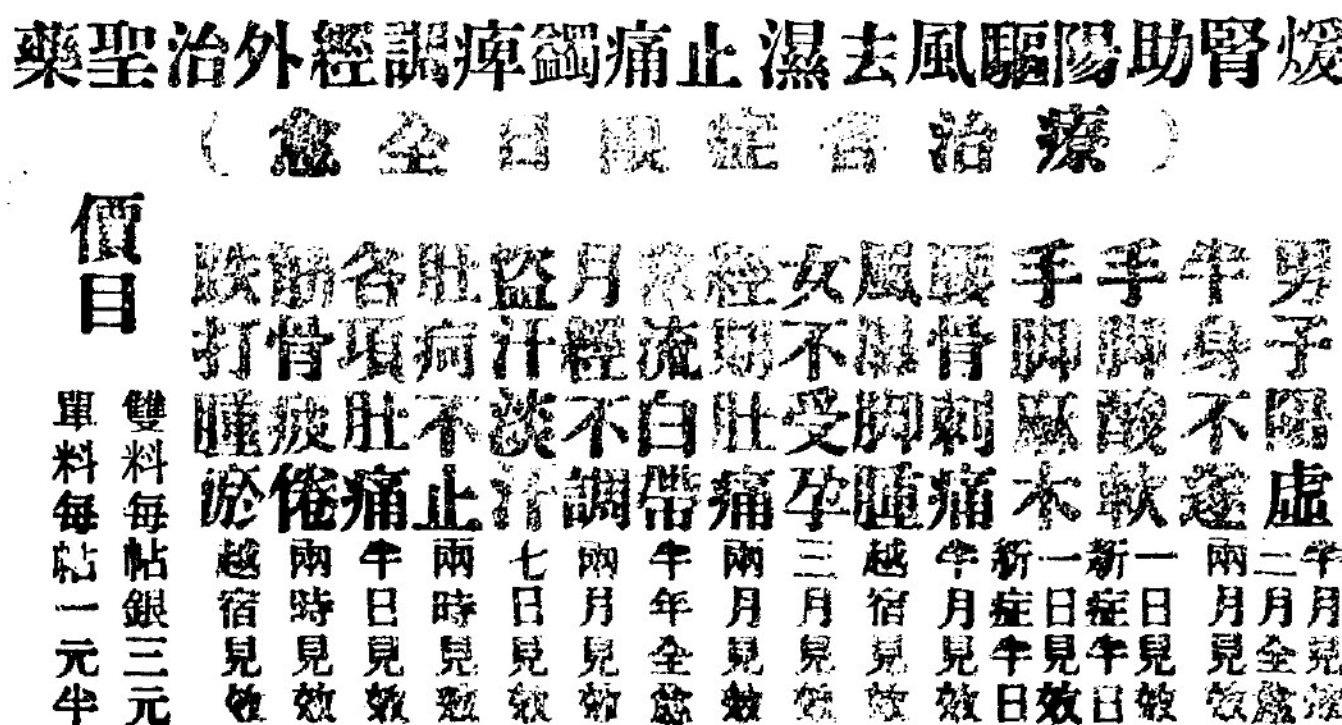 煖腎助陽驅風去濕止痛蠲痺調經外治聖藥
(療治各症限日全愈)
男子陽虛
半月見效
二月全愈
半身不遂
兩月見效
手脚酸軟
一日見效
新症半日
手脚麻木
一日見效
新症半日
腰骨刺痛
半月見效
風濕脚腫
越宿見效
女不受孕
三月見效
經期肚痛
兩月見效
流白帶
半年全愈
月經不調
兩月見效
盜汗淡汗
七日見效
肚痾不止
兩時見效
各項肚痛
半日見效
筋骨疲倦
兩時見效
跌打腫瘀
越宿見效
價目
雙料每帖銀三元
單料每帖一元半